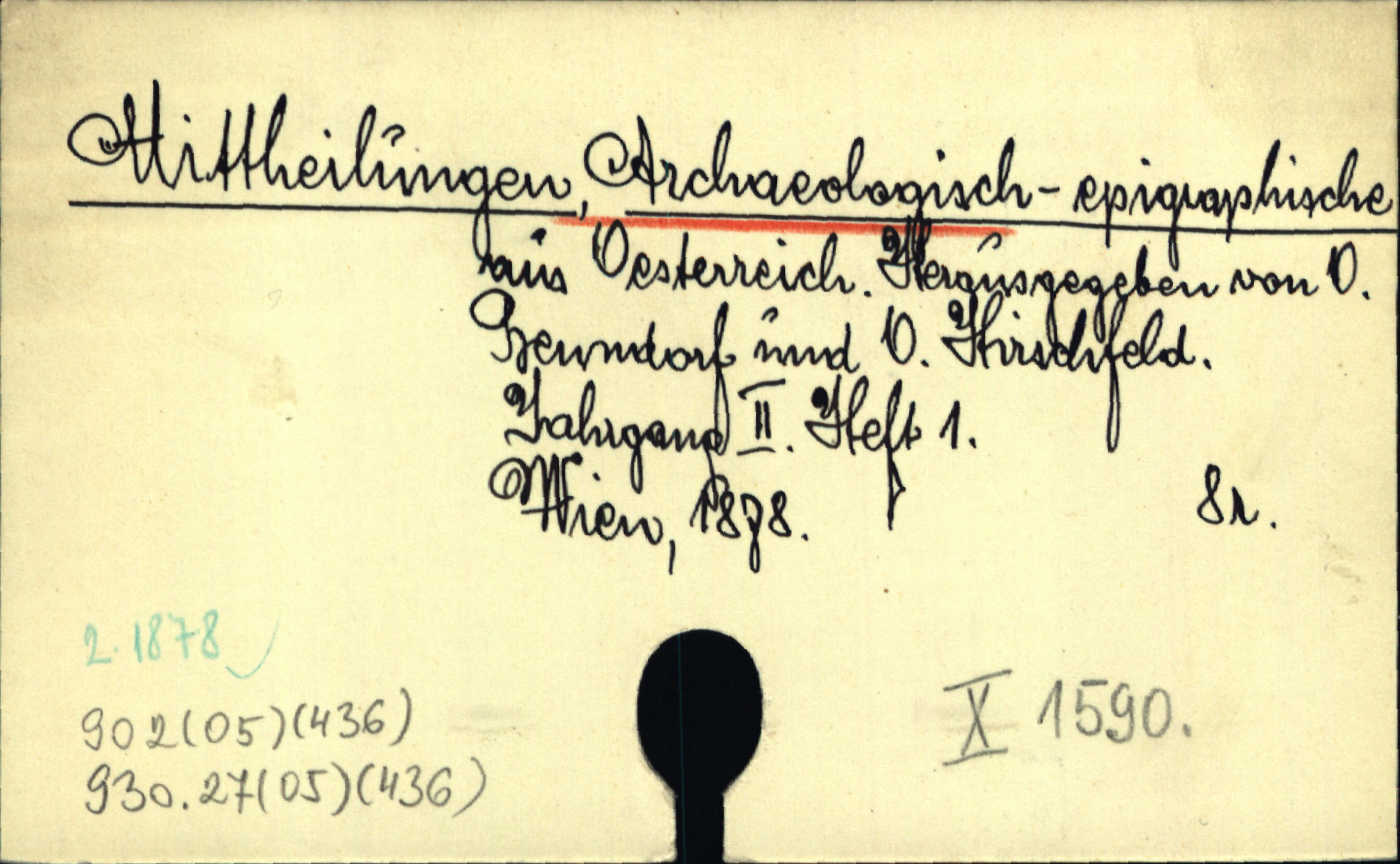 Mittheilungen, Archaeologisch-epigraphische
aus Oesterreich. Herausgegeben von O.
Benndorf und O. Hirschfeld.
Jahrgang II. Heft 1.
Wien, 1878.
8r.
2. 1878
902(05)(436)
930.27(05)(436)
X 1590.